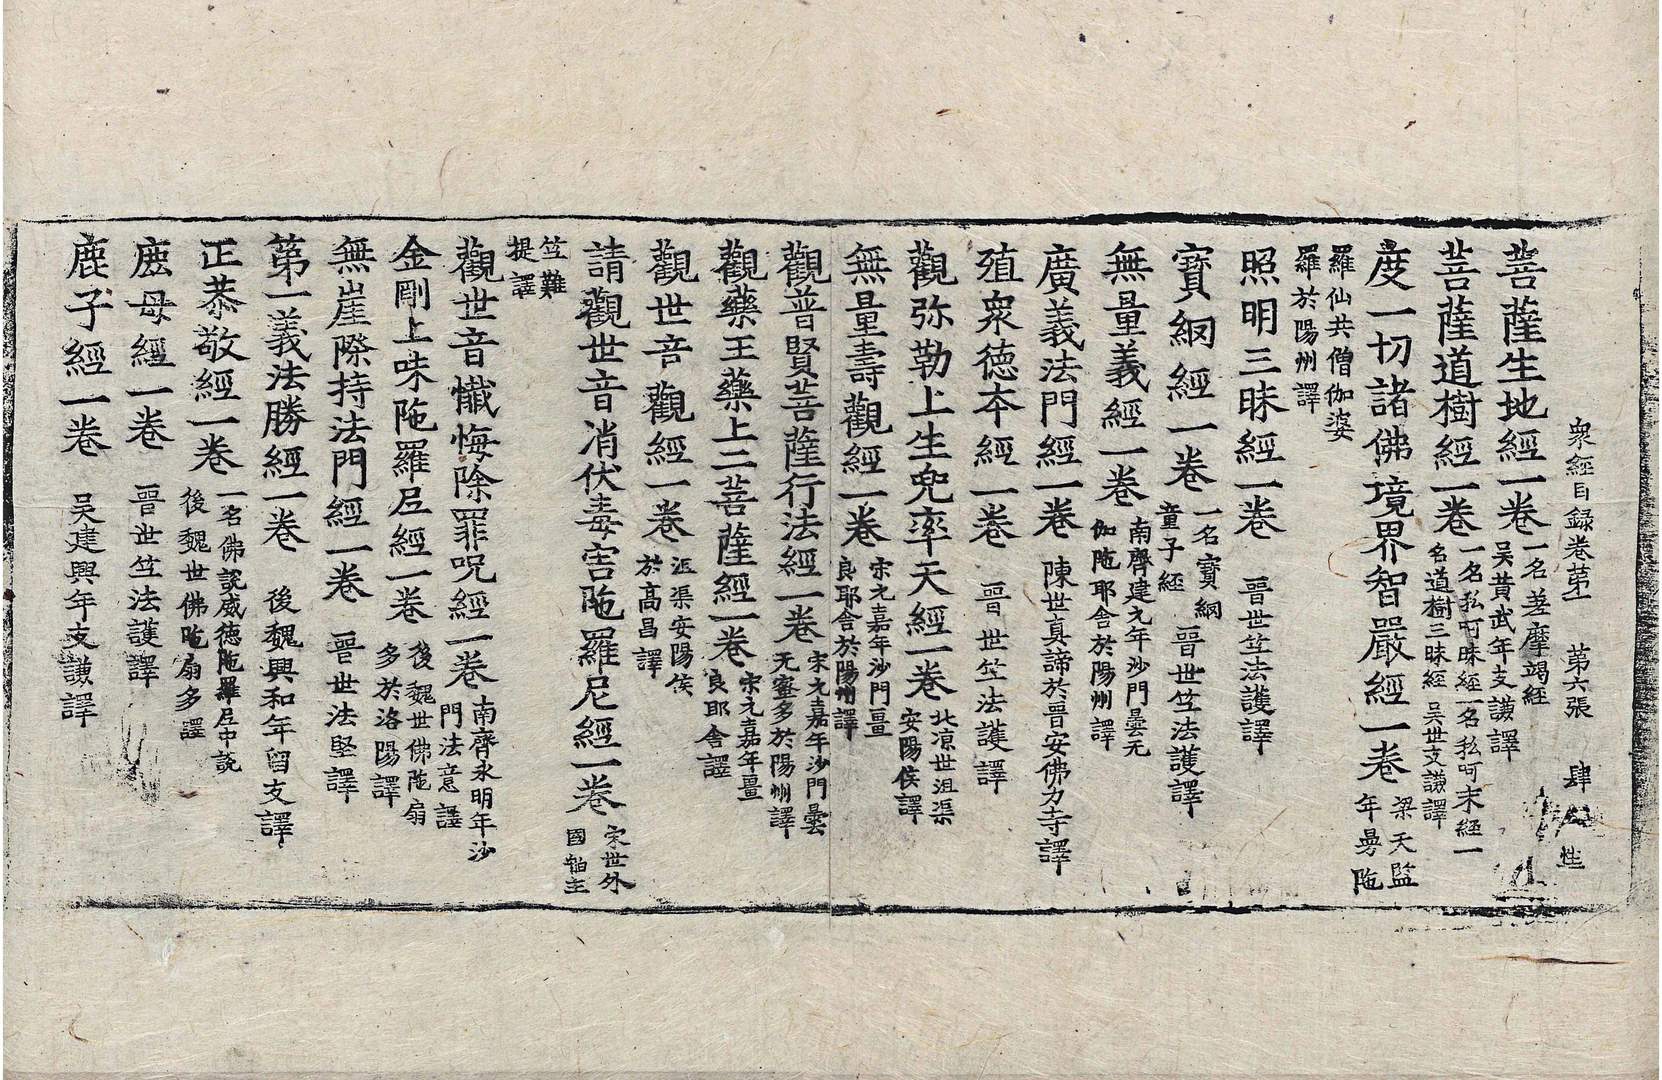 衆經目録卷第一　第六張　肆　性
菩薩生地經一卷 一名差摩竭經 吳黄武年支謙譯
菩薩道樹經一卷 一名私呵昧經一名私呵末經一名道樹三昧經 吳世支謙譯
度一切諸佛境界智嚴經一卷 梁天監年曼陁
羅仙共僧伽婆羅於陽州譯
照明三昧經一卷 晉世竺法護譯
寶網經一卷 一名寶網童子經 晉世竺法護譯
無量義經一卷 南齊建元年沙門曇无伽陁耶舍於陽州譯
廣義法門經一卷 陳世真諦於晉安佛力寺譯
殖衆德夲經一卷 晉世竺法護譯
觀弥勒上生兜率天經一卷 北凉世沮渠安陽侯譯
無量壽觀經一卷 宋元嘉年沙門畺良耶舍於陽州譯
觀普賢菩薩行法經一卷 宋元嘉年沙門曇无蜜多於陽州譯
觀藥王藥上二菩薩經一卷 宋元嘉年畺良耶舍譯
觀世音觀經一卷 沮渠安陽侯於髙昌譯
請觀世音消伏毒害陁羅尼經一卷 宋世外國舶主
竺難提譯
觀世音懺悔除罪呪經一卷 南齊永明年沙門法意譯
金剛上味陁羅尼經一卷 後魏世佛陁扇多於洛陽譯
無崖際持法門經一卷 晉世法堅譯
第一義法勝經一卷 後魏興和年留支譯
正恭敬經一卷 一名佛說威德陁羅尼中説 後魏世佛陁扇多譯
鹿母經一卷 晉世竺法護譯
鹿子經一卷 吳建興年支謙譯